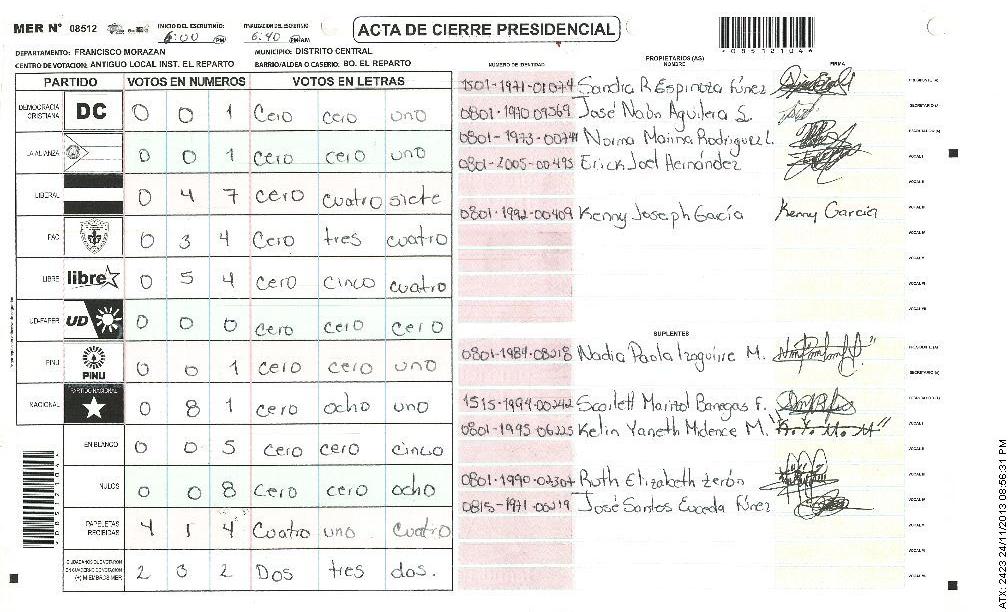 MER Nº 08512 INICIO DEL ESCRUTINIO: 6:00 PM FINALIZACION DEL ESCRUTINIO 6:40 PM
ACTA DE CIERRE PRESIDENCIAL
DEPARTAMENTO: FRANCISCO MORAZAN MUNICIPIO: DISTRITO CENTRAL
CENTRO DE VOTACION: ANTIGUO LOCAL INST. EL REPARTO BARRIO/ALDEA O CASERIO: BO. EL REPARTO
PARTIDO VOTOS EN NUMEROS VOTOS EN LETRAS
DEMOCRACIA CRISTIANA DC 0 0 1 Cero cero uno
LA ALIANZA 0 0 1 cero cero uno
LIBERAL 0 4 7 cero cuatro siete
PAC 0 3 4 Cero tres cuatro
LIBRE libre 0 5 4 Cero cinco cuatro
UD-FAPER UD 0 0 0 Cero cero cero
PINU PINU 0 0 1 cero cero uno
NACIONAL PARTIDO NACIONAL 0 8 1 cero ocho uno
EN BLANCO 0 0 5 cero cero cinco
NULOS 0 0 8 cero cero ocho
PAPELETAS RECIBIDAS 4 1 4 Cuatro uno cuatro
(+) MIEMBROS MER 2 3 2 Dos tres dos.
NUMERO DE IDENTIDAD PROPIETARIOS (AS) NOMBRE FIRMA
1501-1971-01074 Sandra R Espinoza Funez
0801-1990-09369 José Nabn Aguilera S.
0801-1973-00741 Norma Marina Rodriguez L.
0801-2005-00495 Erick Joel Hernández
0801-1992-00409 Kenny Joseph García Kenny Garcia
SUPLENTES
0801-1984-08218 Nadia Paola Izaguirre M.
1515-1994-00242 Scarlett Marizol Banegas F.
0801-1995-06225 Kelin Yaneth Midence M. "K. Y. M. M"
0801-1990-07307 Ruth Elizabeth Zerón
0815-1971-00219 José Santos Euceda Fúnez
ATX: 2423 24/11/2013 08:56:31 PM